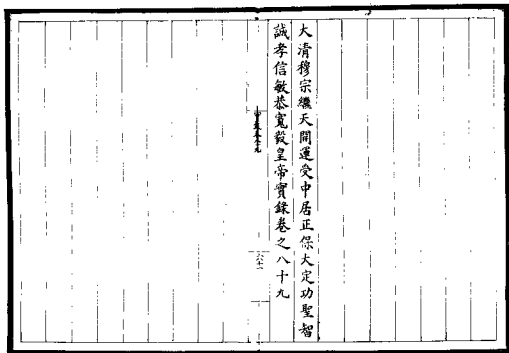 大清穆宗繼天開運受中居正保大定功聖智
誠孝信敏恭寬毅皇帝實錄卷之八十九